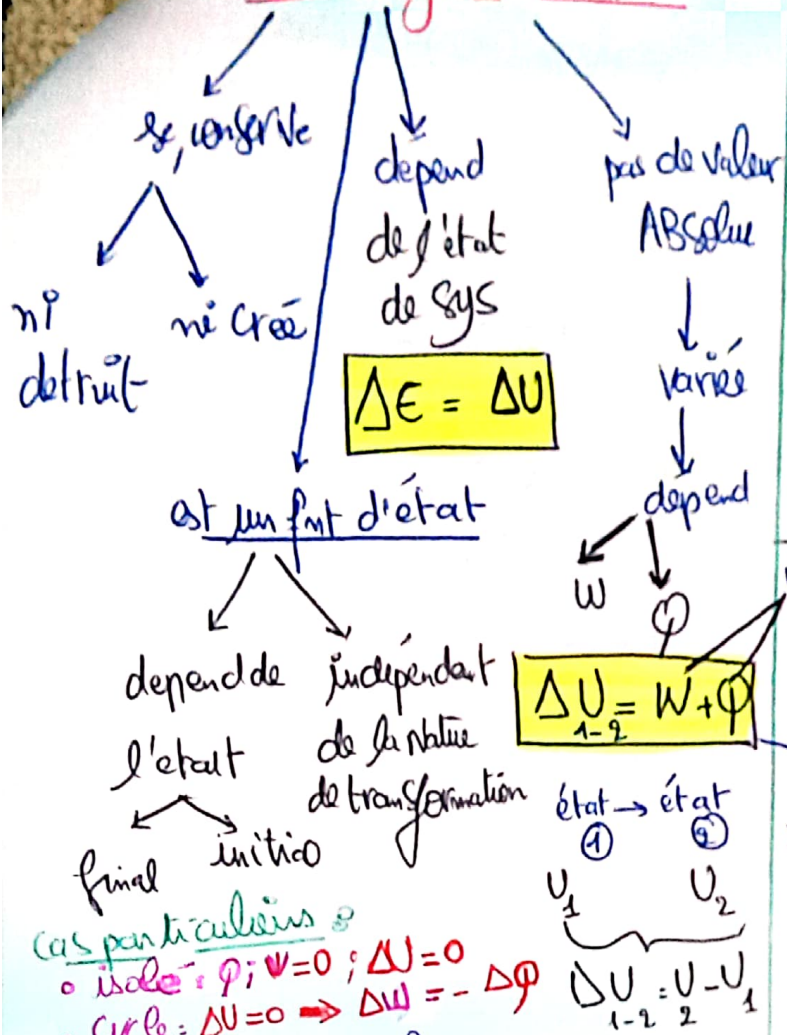 se conserve
ni
detruit
ni créé
dépend
de l'état
de sys
ΔE = ΔU
pas de valeur
ABSolue
variée
dépend
W
φ
ΔU = W + φ
1-2
est un fnt d'état
depend de
l'état
final
initial
indépendant
de la Nature
de transformation
état → état
① ②
U₁ U₂
ΔU = U - U₁
1-2 2
cas particuliers :
o isolé : φ ; W=0 ; ΔU=0
cycle : ΔU=0 ⇒ ΔW = - Δφ